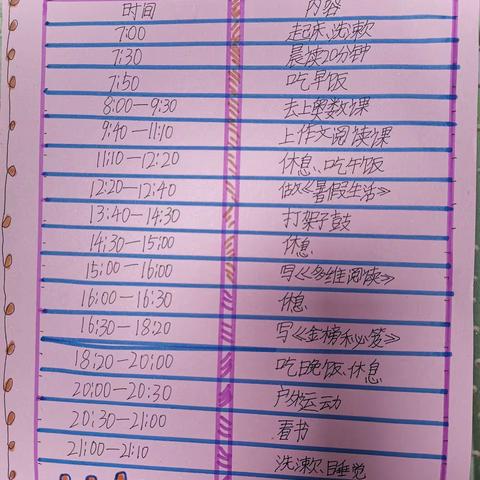 时间 内容
7:00 起床、洗漱
7:30 晨读20分钟
7:50 吃早饭
8:00—9:30 去上奥数课
9:40—11:10 上作文阅读课
11:10—12:20 休息、吃午饭
12:20—12:40 做《暑假生活》
13:40—14:30 打架子鼓
14:30—15:00 休息
15:00—16:00 写《多维阅读》
16:00—16:30 休息
16:30—18:20 写《金榜秘笺》
18:20—20:00 吃晚饭、休息
20:00—20:30 户外运动
20:30—21:00 看书
21:00—21:10 洗漱、睡觉